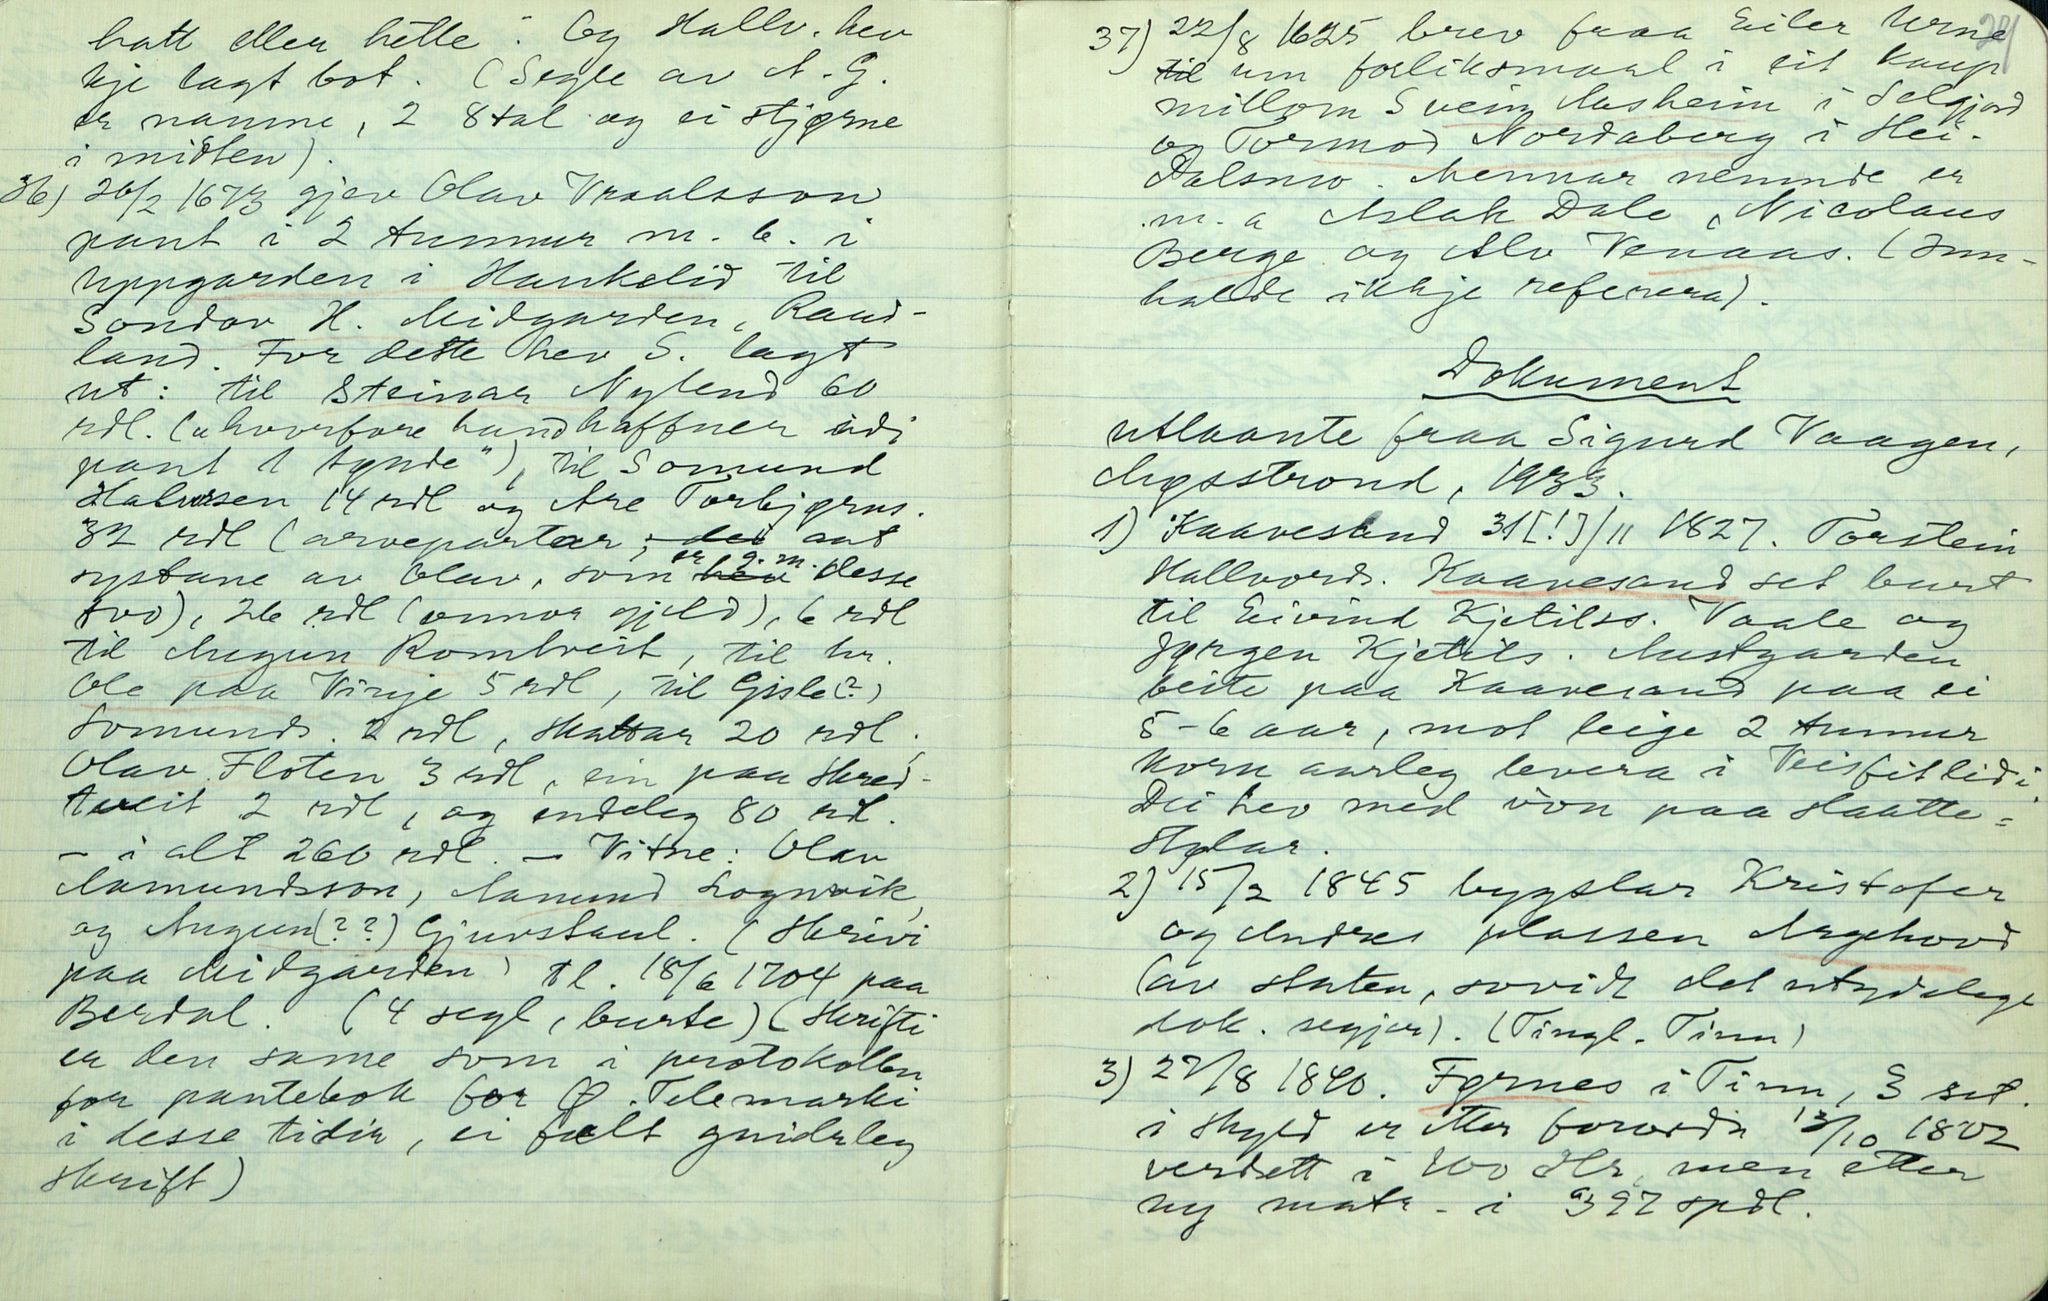 hatt eller hette". Og Hallv. hev
kje lagt bot. (Segle av N. G.
er namne, 2 8tal og ei stjørne
i midten).
36) 26/2 1673 gjev Olav Vraalsson
pant i 2 tunnur m. b. i
Uppgarden i Haukelid til
Sondov H. Midgarden, Raud-
land. For dette hev S. lagt
ut: til Steinar Nylend 60
rdl. ("hvorfore hand haffuer udi
pant 1 tynde"), til Somund
Halvorsen 14 rdl og Are Torbjørns.
32 rdl (arvepartar, dei aat
systane av Olav, som er g. m. hev desse
tvo), 26 rdl (onnor gjeld), 6 rdl
til Augun Romtveit, til hr.
Ole paa Vinje 5 rdl, til Gisle(?)
Somunds. 2 rdl, skattar 20 rdl.
Olav Floten 3 rdl, ein paa Skred-
tveit 2 rdl, og endeleg 80 rdl.
— i alt 260 rdl. — Vitne: Olav
Aamundsson, Aamund Lognvik,
og Augun(??) Gjuvstaul. (Skrivi
paa Midgarden) tl. 18/6 1704 paa
Berdal. (4 segl, burte) (Skrifti
er den same som i protokollen
for pantebok for Ø. Telemarki
i desse tidir, ei fælt gnidreleg
skrift)
37) 22/8 1625 brev fraa Eiler Urne
til um forliksmaal i eit kaup
millom Svein Aasheim i Seljord
og Tormod Nordaberg i Hei-
dalsmo. Mennar nemnde er
m. a Aslak Dale, Nicolaus
Berge og Alv Venaas. (Inn-
halde ikkje referera).
Dokument
utlaante fraa Sigurd Vaagen,
Møsstrond, 1933.
1) Kaavesand 31[!]/11 1827. Torstein
Hallvords. Kaavesand set burt
til Eivind Kjetilss. Vaale og
Jørgen Kjetils. Austgarden
beite paa Kaavesand paa ei
5-6 aar, mot leige 2 tunnur
korn aarleg levera i Veisfitlidi.
Dei hev med von paa Slaatte-
stylar.
2) 15/2 1845 bygslar Kristofer
og Andres plassen Argehovd
(av staten, sovidt det utydelege
dok. segjer). (Tingl. Tinn)
3) 27/8 1840. Førnes i Tinn, 3 set.
i skyld er etter forordn 13/10 1802
verdsett i 100 Hr, men etter
ny matr. i 397 spdl.